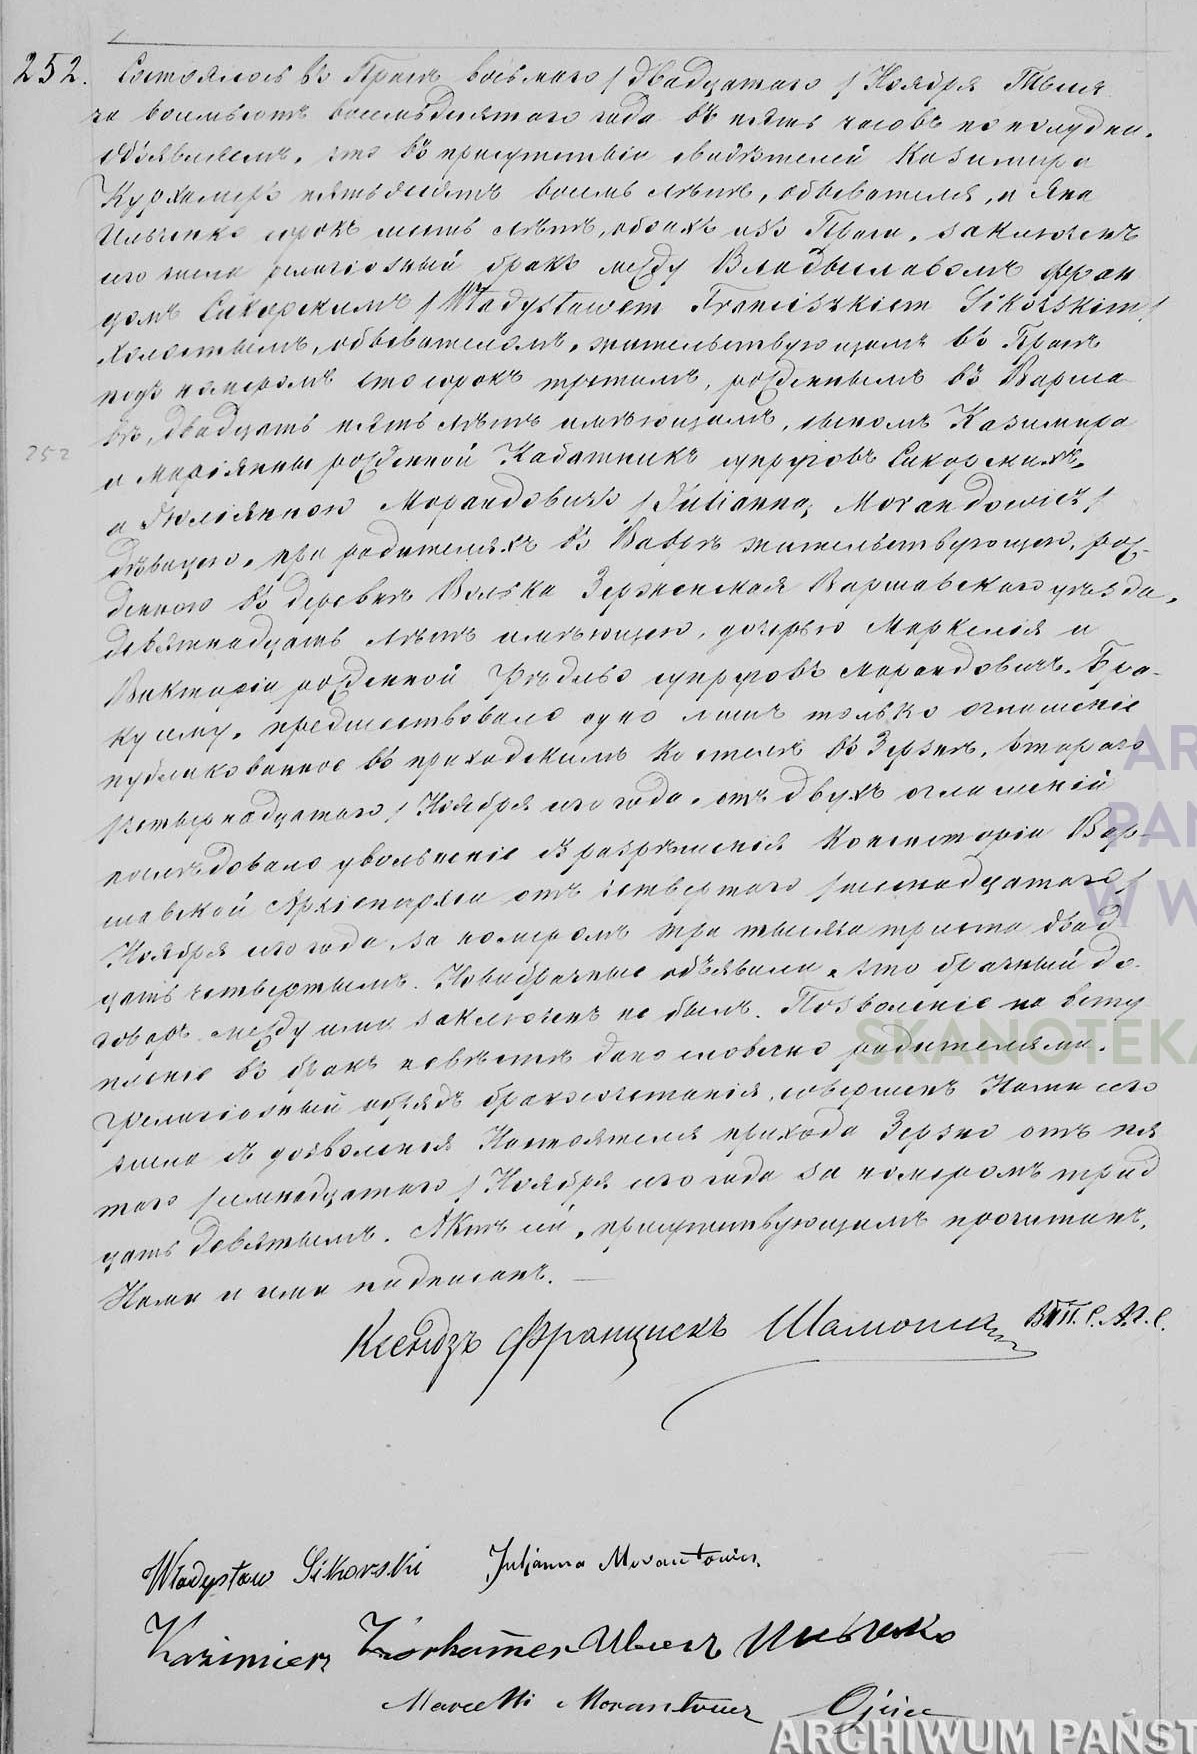 252. Состоялось въ Прагѣ восьмаго /двадцатаго/ Ноября Тысяча
ча восемьсотъ восемьдесятаго года въ пять часовъ по полудни.
Объявляемъ, что въ присутствіи свидѣтелей Казимира
Курхамеръ пятьдесятъ восемь лѣтъ, обывателя, и Яна
сорокъ шесть лѣтъ, обоихъ изъ Праги, заключенъ
сего числа религіозный бракъ между Владыславомъ Фран
цомъ Сикорскимъ /Władysławem Franciszkiem Sikorskim/
холостымъ, обывателемъ, жительствующимъ въ Прагѣ
подъ номеромъ сто сорокъ третьимъ, рожденнымъ въ Варша
вѣ, двадцать пять лѣтъ имѣющимъ, сыномъ Казимира
252
и Маріянны рожденной Кабатникъ супруговъ Сикорскихъ,
и Юліянною Морандовичъ /Julianną Morandowicz/
дѣвицею, при родителяхъ въ Ваврѣ жительствующею, рож-
денною въ деревнѣ Волька Зерженская Варшавскаго уѣзда,
девятнадцать лѣтъ имѣющею, дочерью Маркелія и
Викторіи рожденной супруговъ Морандовичъ. Бра-
ку сему, предшествовало одно лишь только оглашеніе
публикованное въ приходскимъ костелѣ въ Зерзнѣ, втораго
/четырнадцатаго/ Ноября сего года, отъ двухъ оглашеній
послѣдовало увольненіе съ разрѣшенія Консисторіи Вар-
шавской Архіепархіи отъ четвертаго /шестнадцатаго/
Ноября сего года, за номеромъ три тысяча триста двад
цать четвертымъ. Новобрачные объявили, что брачный до-
говоръ между ими заключенъ не былъ. Позволеніе на всту
пленіе въ бракъ невѣстѣ дано словесно родителями.
Религіозный обрядъ бракосочетанія, совершенъ Нами сего
числа съ дозволенія Настоятеля прихода Зерзно отъ пя
таго /семнадцатаго/ Ноября сего года за номеромъ трид
цать девятымъ. Актъ сей, присутствующимъ прочитанъ,
Нами и ими подписанъ. —
Ксендзъ Францискъ
Władysław Sikorski Julianna Morantowicz
Kazimierz Korhamer
Marcelli Morantowicz Ojciec
ARCHIWUM PAŃST
SKANOTEKA
AR
PAŃ
WW